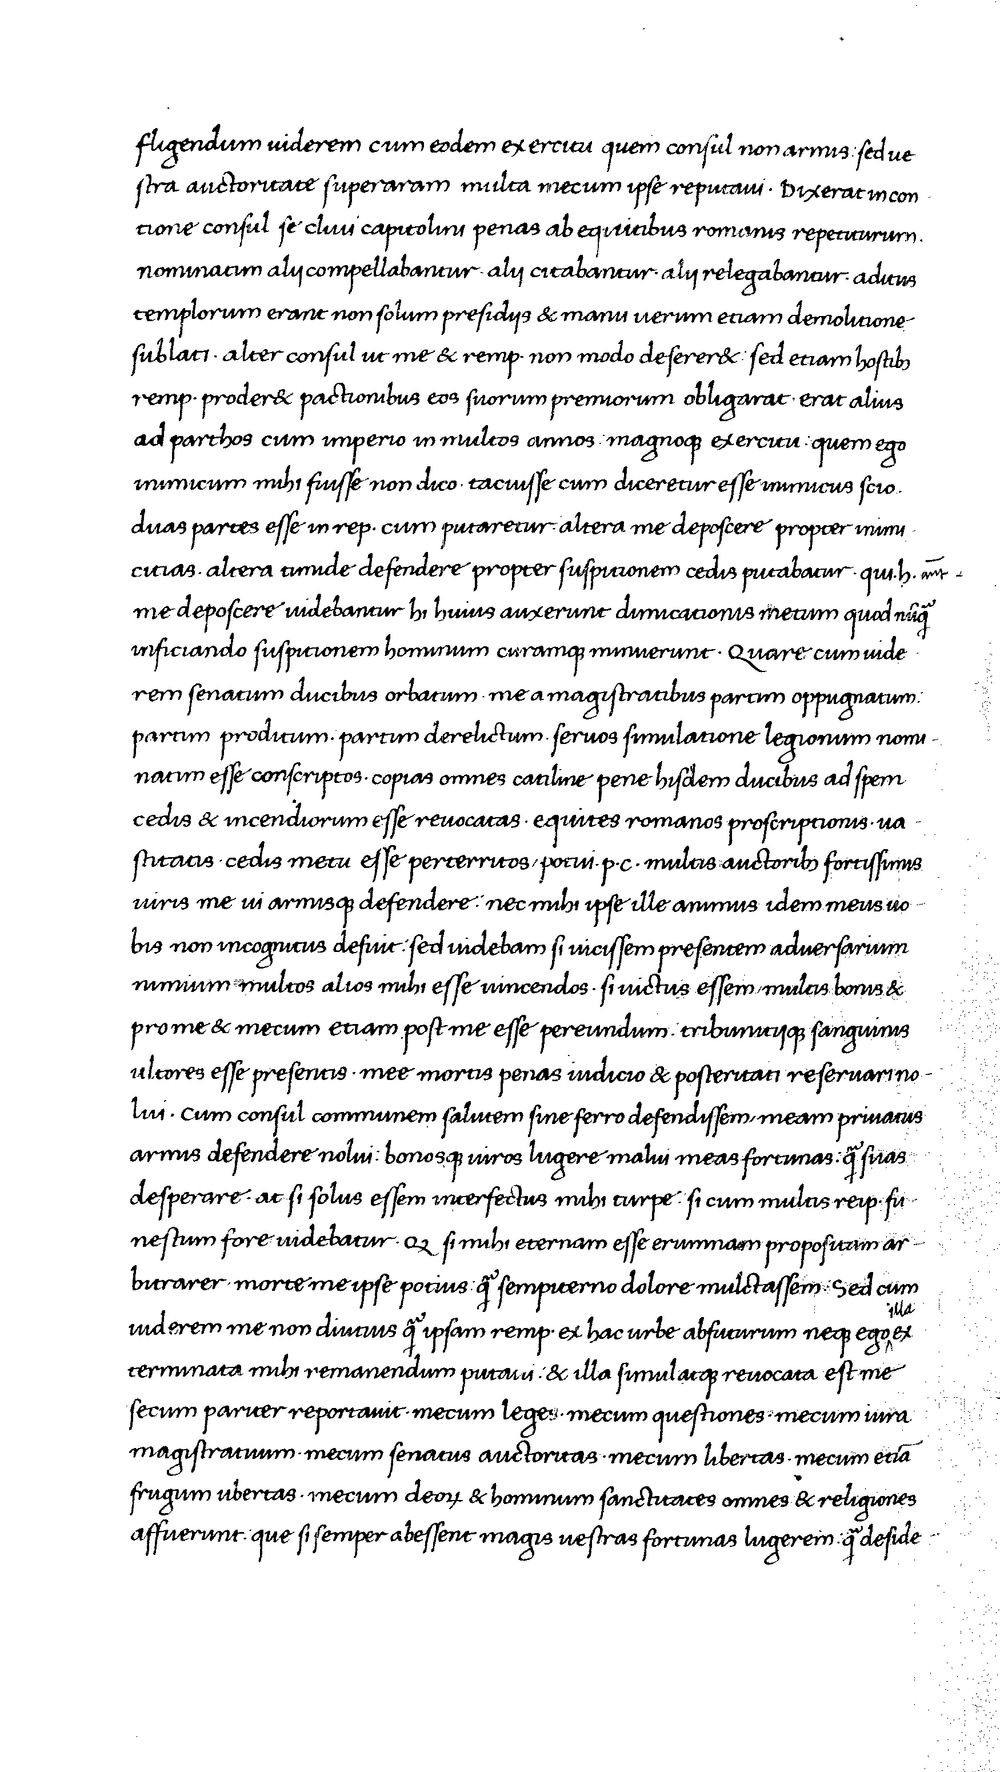 fligendum uiderem cum eodem exercitu quem consul non armis: sed ue
stra auctoritate superaram multa mecum ipse reputaui. Dixerat in con
tione consul se cliui capitolini penas ab equitibus romanis repetiturum.
nominatim alij compellabantur. alij citabantur. alij relegabantur. aditus
templorum erant non solum presidijs & manu uerum etiam demolitione
sublati. alter consul ut me & remp. non modo deserer&: sed etiam hostibꝫ
remp. proder& pactionibus eos suorum premiorum obligarat. erat alius
ad parthos cum imperio in multos annos: magnoqꝫ exercitu: quem ego
inimicum mihi fuisse non dico. tacuisse cum diceretur esse inimicus scio.
duas partes esse in rep. cum putaretur. altera me deposcere propter inimi
citias. altera timide defendere propter suspitionem cedis putabatur. qui .h. aut̄ -
me deposcere uidebantur hi huius auxerunt dimicationis metum quod nūq̄
inficiando suspitionem hominum curamqꝫ minuerunt. Quare cum uide
rem senatum ducibus orbatum. me a magistratibus partim oppugnatum:
partim proditum. partim derelictum. seruos simulatione legionum nomi-
natim esse conscriptos. copias omnes catiline pene hisdem ducibus ad spem
cedis & incendiorum esse reuocatas. equites romanos proscriptionis. ua-
stitatis. cedis metu esse perterritos/ potui .p.c. multis auctoribꝫ fortissimis
uiris me ui armisqꝫ defendere: nec mihi ipse ille animus idem meus uo-
bis non incognitus defuit: sed uidebam si uicissem presentem aduersarium
nimium multos alios mihi esse uincendos. si uictus essem/ multis bonis &
pro me & mecum etiam post me esse pereundum: tribunitijqꝫ sanguinis
ultores esse presentis. mee mortis penas iudicio & posteritati reseruari no-
lui. Cum consul communem salutem sine ferro defendissem/ meam priuatus
armis defendere nolui: bonosqꝫ uiros lugere malui meas fortunas: q̄ suas
desperare. at si solus essem interfectus mihi turpe: si cum multis reip. fu-
nestum fore uidebatur. Qꝫ si mihi eternam esse erumnam propositam ar-
bitrarer. morte me ipse potius q̄ sempiterno dolore mulctassem. Sed cum
uiderem me non diutius q̄ ipsam remp. ex hac urbe abfuturum neqꝫ ego illa ex
terminata mihi remanendum putaui: & illa simul atqꝫ reuocata est me
secum pariter reportauit. mecum leges. mecum questiones. mecum iura
magistratuum. mecum senatus auctoritas. mecum libertas. mecum etiā
frugum ubertas. mecum deoꝝ & hominum sanctitates omnes & religiones
affuerunt. que si semper abessent magis uestras fortunas lugerem: q̄ deside